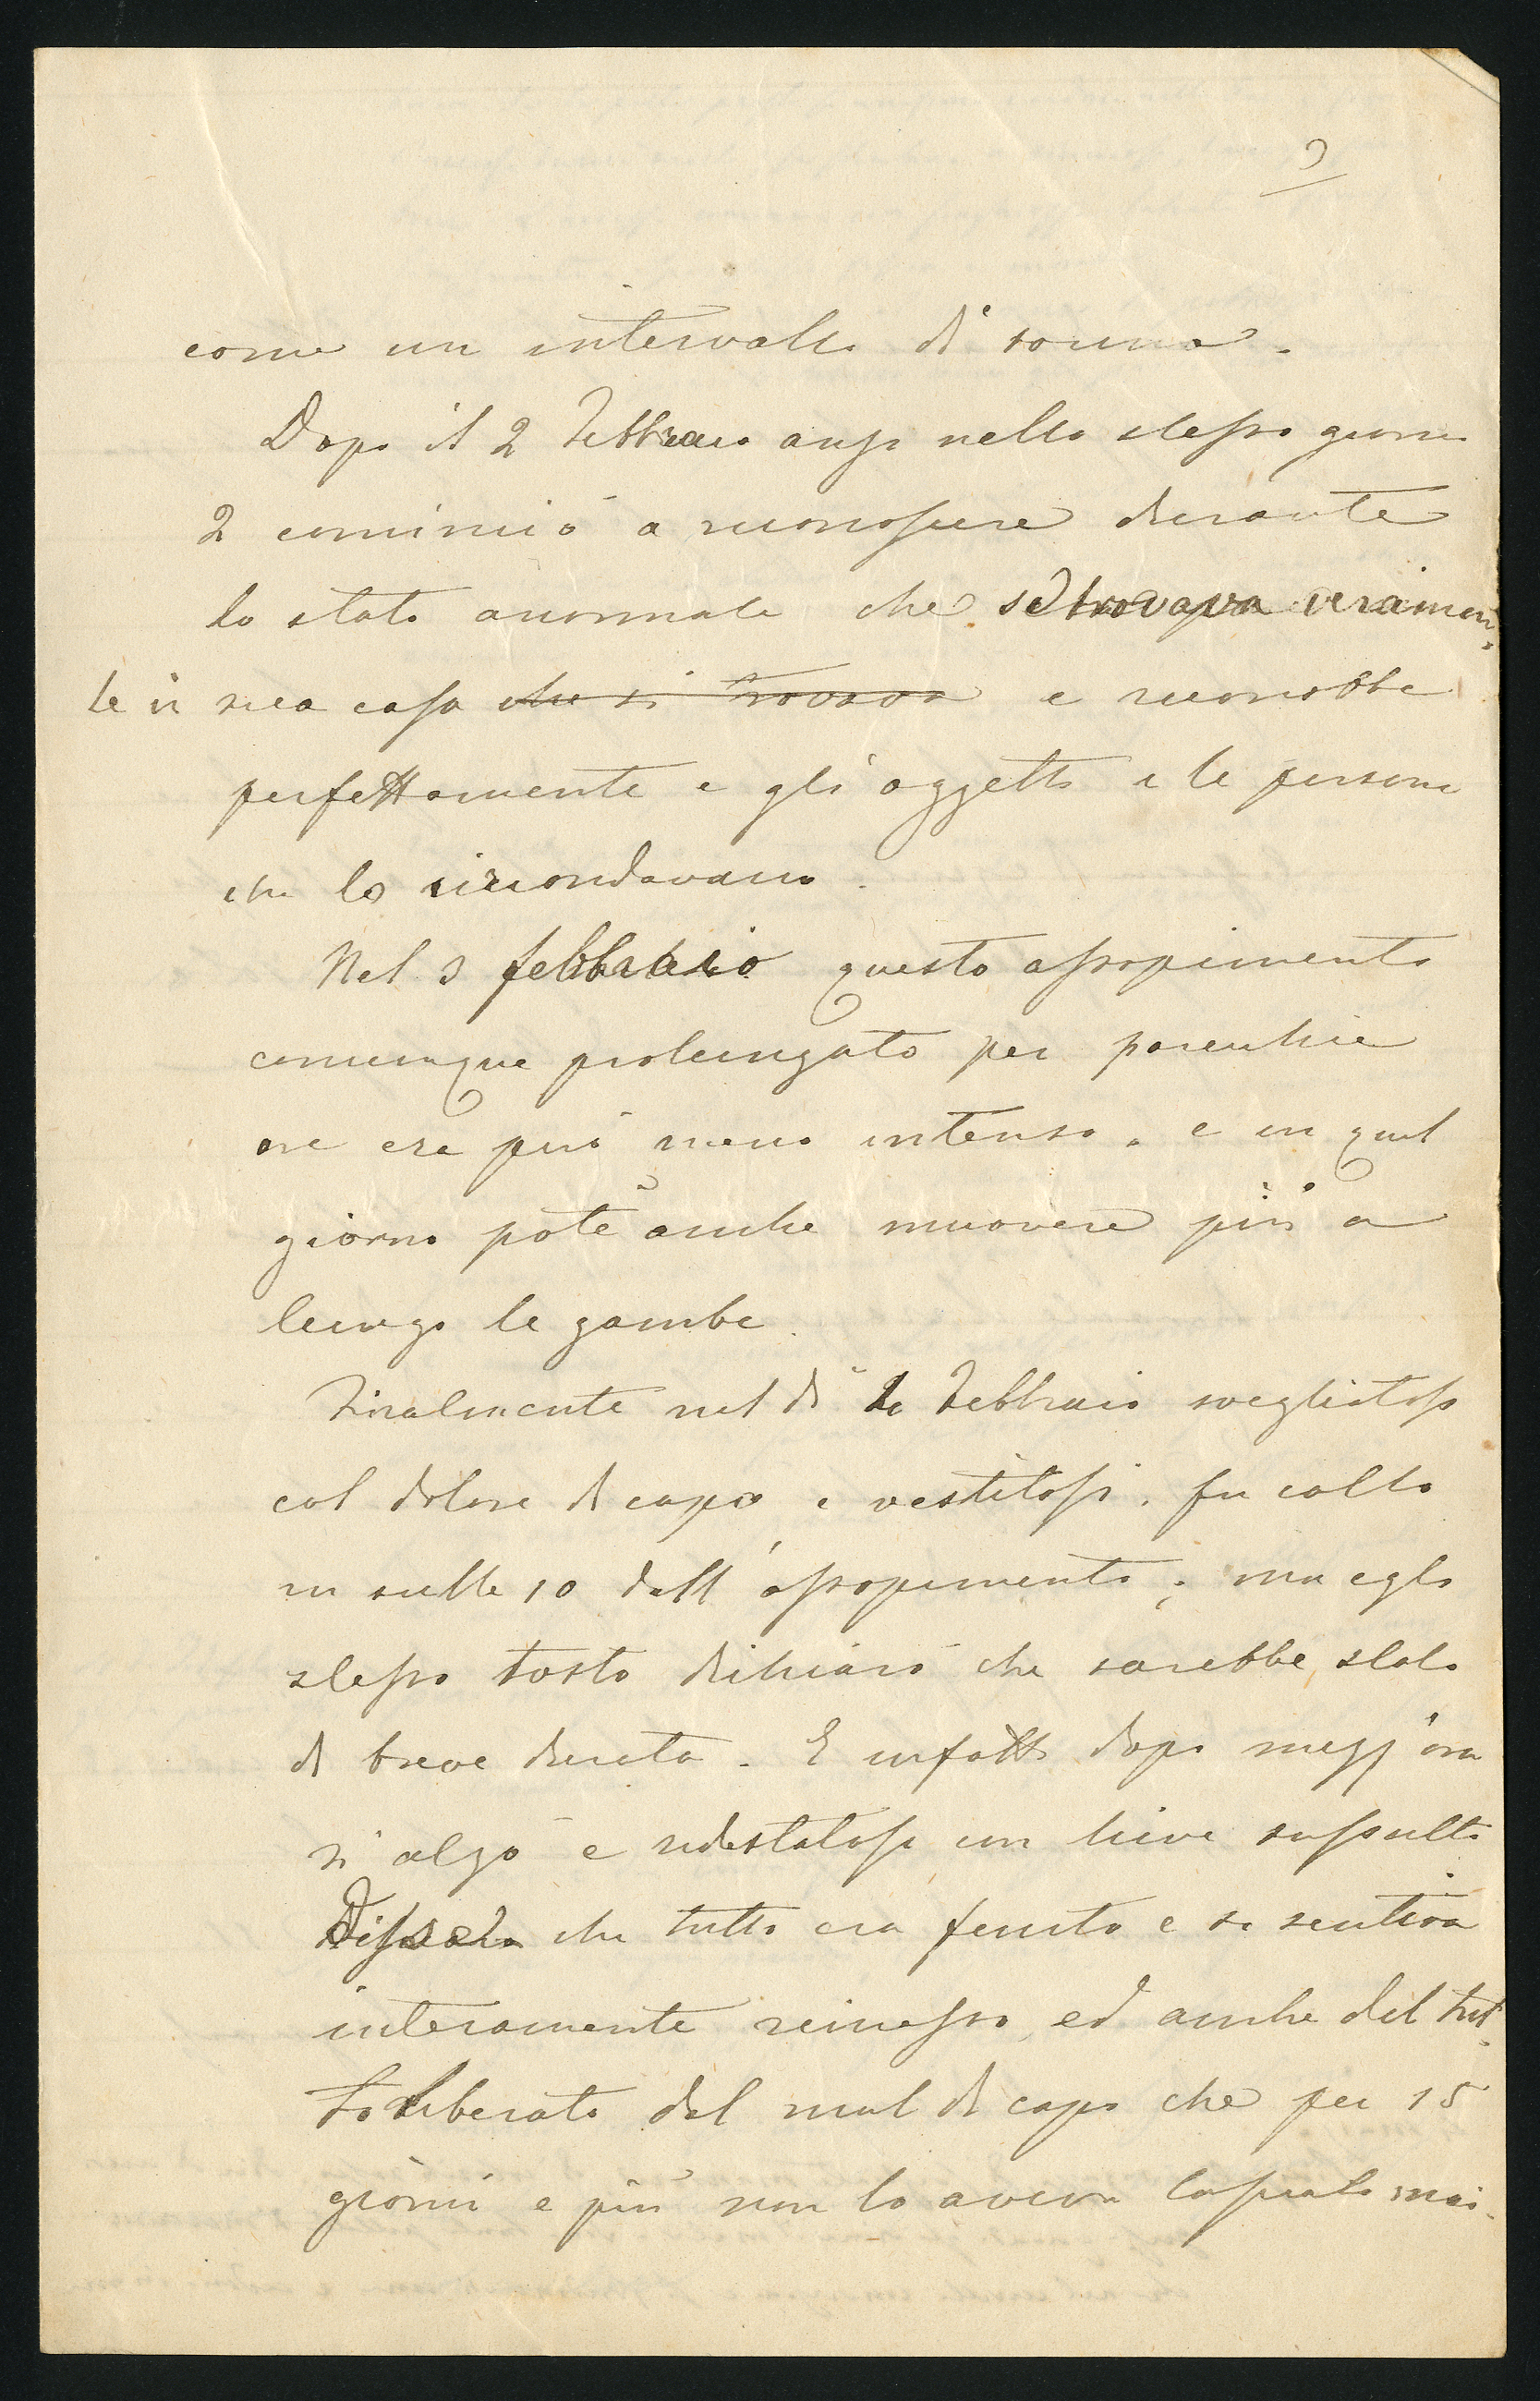 9
come un intervallo di sonno.
Dopo il 2 Febbraio anzi nello stesso giorno
2 cominciò a riconoscere durante
lo stato anormale che si trovava veramen
te in sua casa che si trovava e riconobbe
perfettamente e gli oggetti e le persone
che lo circondavano.
Nel 3 febbraio questo assopimento
comunque prolungato per parecchie
ore era però meno intenso, e in quel
giorno potè anche muovere più a
lungo le gambe.
Finalmente nel dì Febbraio svegliatosi
col dolore di capo e vestitosi, fu colto
in sulle 10 dall'assopimento; ma egli
stesso tosto dichiarò che sarebbe stato
di breve durata. E infatti dopo mezz'ora
si alzò e ridestatosi con lieve sussulto
Disse che tutto era finito e si sentiva
interamente rimesso, ed anche del tut
to liberato dal mal di capo che per 15
giorni e più non lo aveva lasciato mai.